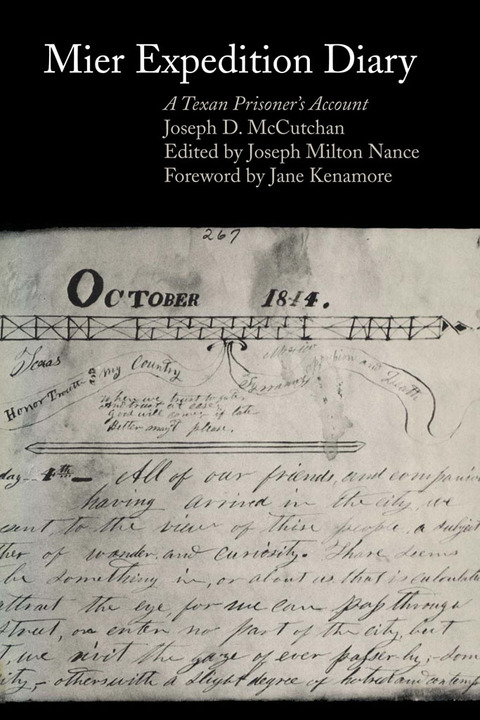 Mier Expedition Diary
A Texan Prisoner's Account
Joseph D. McCutchan
Edited by Joseph Milton Nance
Foreword by Jane Kenamore
267
OCTOBER 1844.
Texas
my Country
Honor Truth and
Death
When we trust to fate
And trust at ease,
Good will comes if late
Better may't please.
day 4th All of our friends, and companions
having arrived in the city, we
to the view of these people, a subject
of wonder and curiosity. There seems
be something in, or about us that is calculated
attract the eye, for we can pass through
street, or enter no part of the city, but
we rivit the gaze of ever passer by, some
others with a slight degree of hatred and contemp